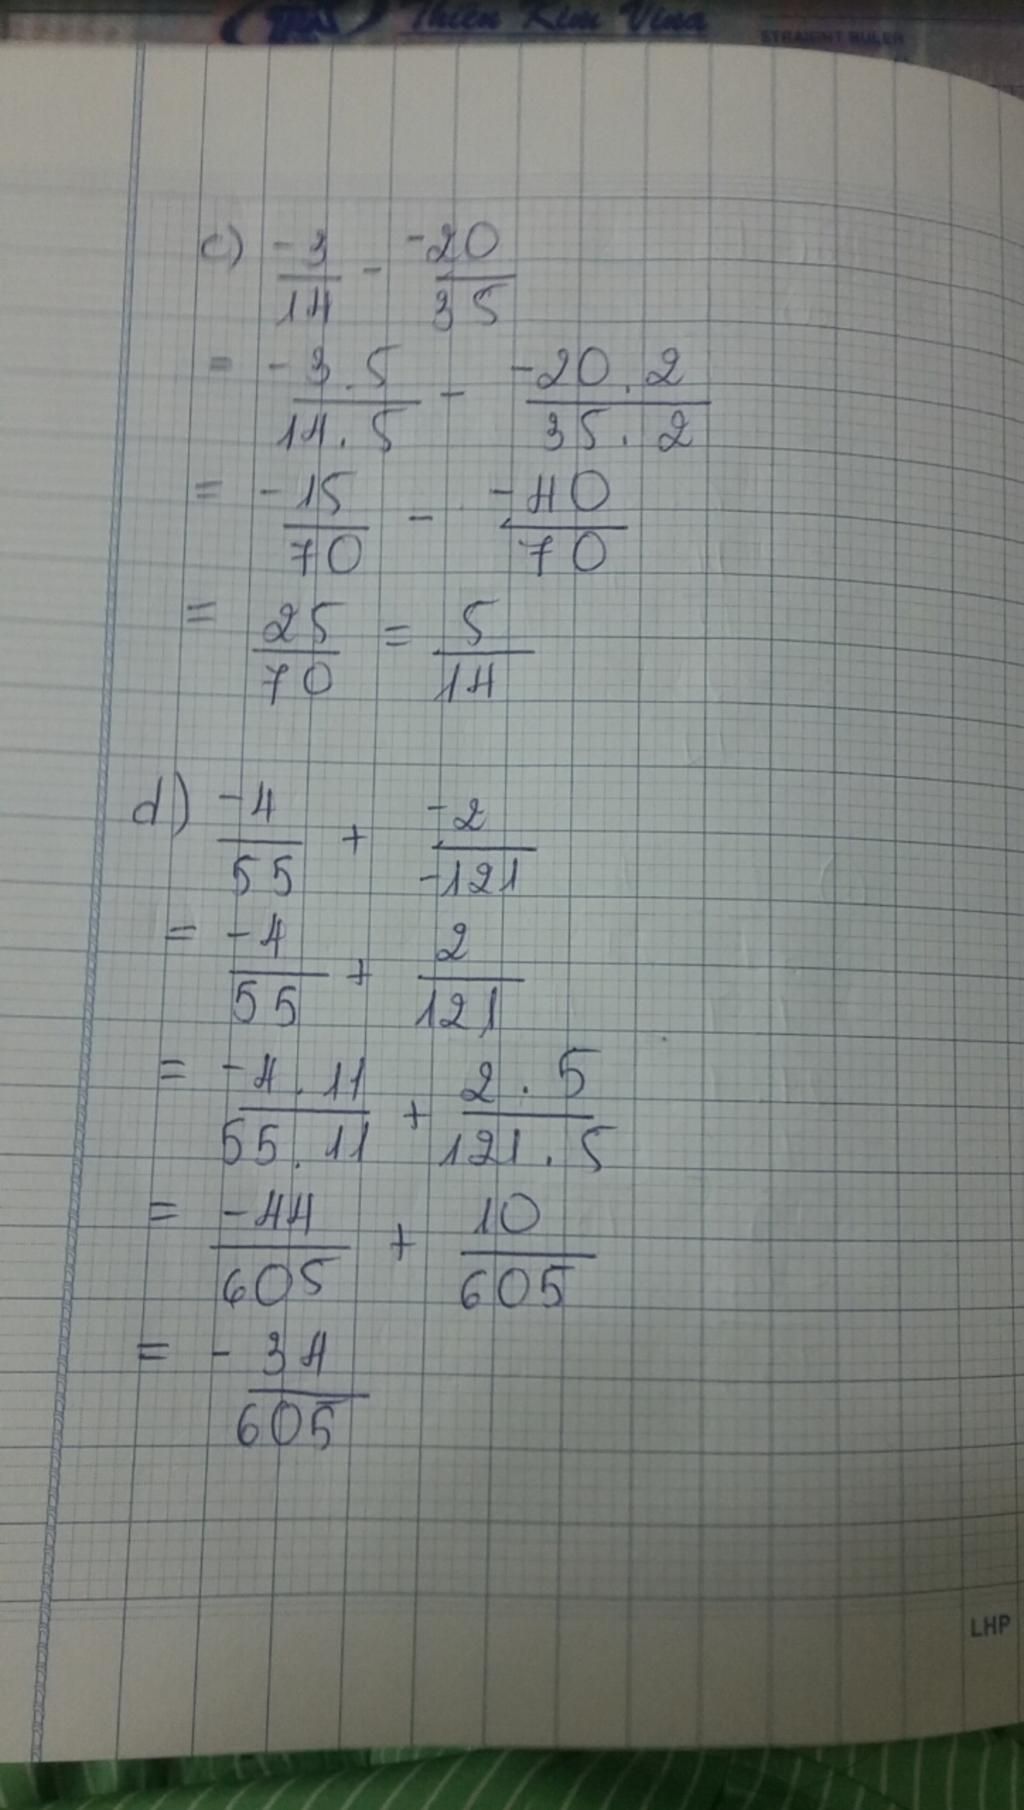 Thiên Kim Vina
STRAIGHT RULER
c) -3/14 - -20/35
= -3.5/14.5 - -20.2/35.2
= -15/70 - -40/70
= 25/70 = 5/14
d) -4/55 + -2/-121
= -4/55 + 2/121
= -4.11/55.11 + 2.5/121.5
= -44/605 + 10/605
= -34/605
LHP